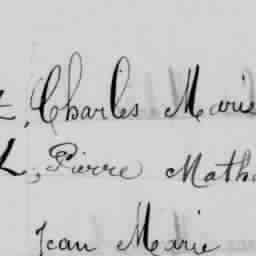 , Charles Marie
, Pierre Math
Jean Marie